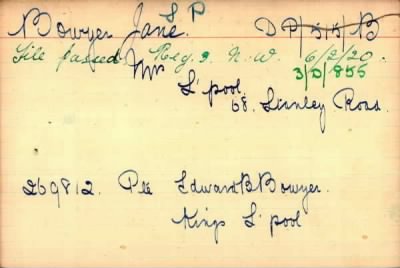 Bowyer Jane. S P D P/515/B
File passed Reg. 3. N.W. 6/2/20.
Mrs 3/D/855
L'pool
68. Linnley Road.
269812. Pte Edward B Bowyer.
Kings L'pool